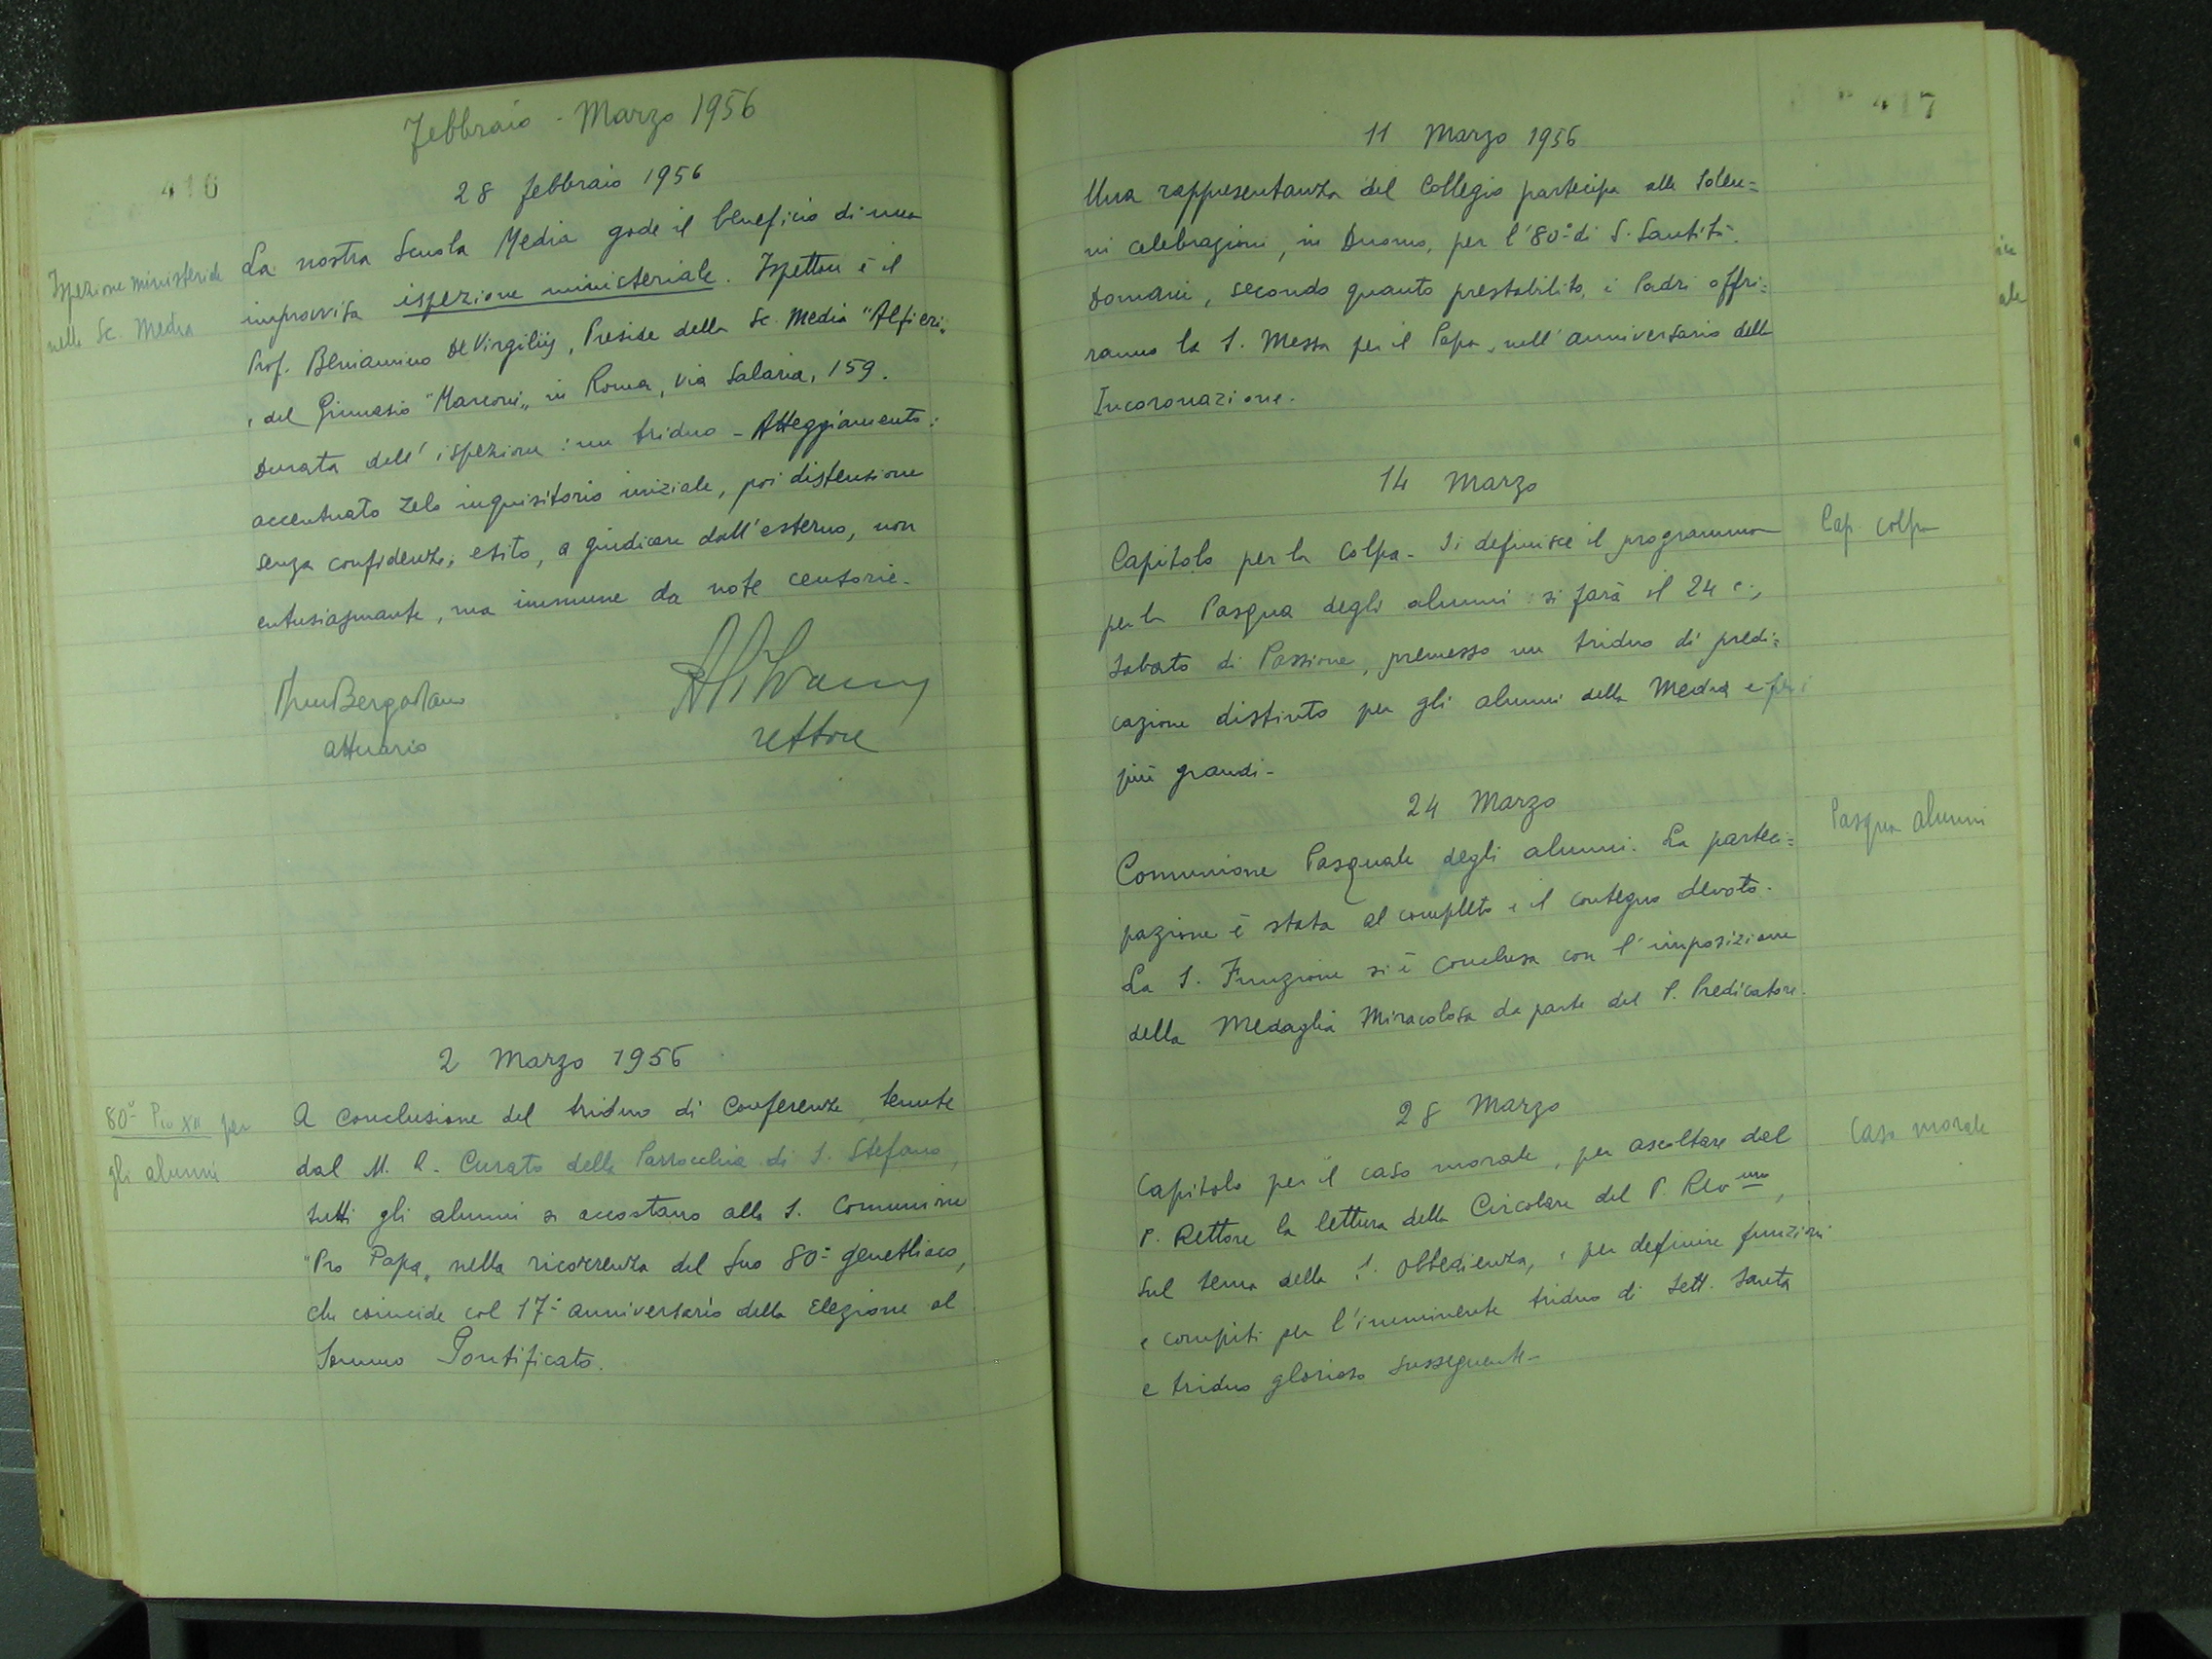 Febbraio - Marzo 1956
416
28 febbraio 1956
Ispezione ministeriale
nella Sc. Media
La nostra Scuola Media gode il beneficio di una
improvvisa ispezione ministeriale. Ispettore è il
Prof. Beniamino De Virgiliis, Preside della Sc. Media "Alfieri"
e del Ginnasio "Marconi" in Roma, via Salaria, 159.
Durata dell'ispezione: un triduo - Atteggiamento:
accentuato zelo inquisitorio iniziale, poi distensione
senza confidenze; esito, a giudicare dall'esterno, non
entusiasmante, ma immune da note censorie.
attuario
rettore
2 Marzo 1956
80° Pio XII per
gli alunni
A conclusione del triduo di Conferenze tenute
dal M. R. Curato della Parrocchia di S. Stefano,
tutti gli alunni si accostano alla S. Comunione
"Pro Papa" nella ricorrenza del Suo 80° genetliaco,
che coincide col 17° anniversario della Elezione al
Sommo Pontificato.
417
11 Marzo 1956
Una rappresentanza del Collegio partecipa alle Solen=
ni celebrazioni, in Duomo, per l'80° di S. Santità.
Domani, secondo quanto prestabilito, i Padri offri=
ranno la S. Messa per il Papa, nell'anniversario della
Incoronazione.
14 Marzo
Cap. colpa
Capitolo per la Colpa - Si definisce il programma
per la Pasqua degli alunni: si farà il 24 c.,
Sabato di Passione, premesso un triduo di predi=
cazione distinto per gli alunni della Media e per i
più grandi -
24 Marzo
Pasqua alunni
Comunione Pasquale degli alunni. La parteci=
pazione è stata al completo e il contegno devoto.
La S. Funzione si è conclusa con l'imposizione
della Medaglia Miracolosa da parte del P. Predicatore.
28 Marzo
Caso morale
Capitolo per il caso morale, per ascoltare dal
P. Rettore la lettura della Circolare del P. Rev.mo,
sul tema della S. Obbedienza, e per definire funzioni
e compiti per l'imminente triduo di Sett. Santa
e triduo glorioso susseguente -